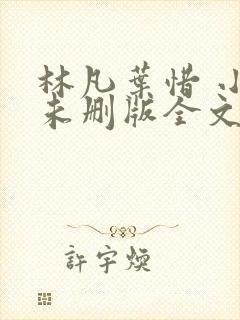 林凡葉惜 小
未删版全文
許宇煐